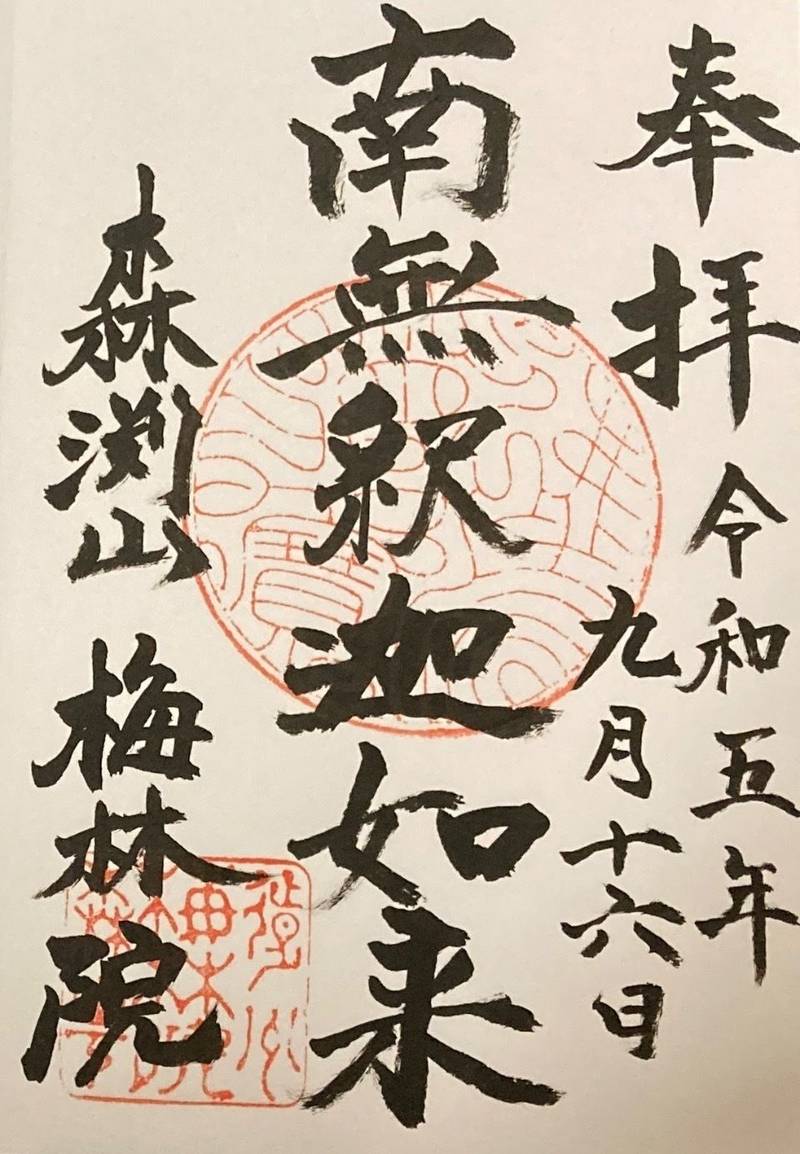 奉拝
令和五年
九月十六日
南無釈迦如来
森渕山 梅林院